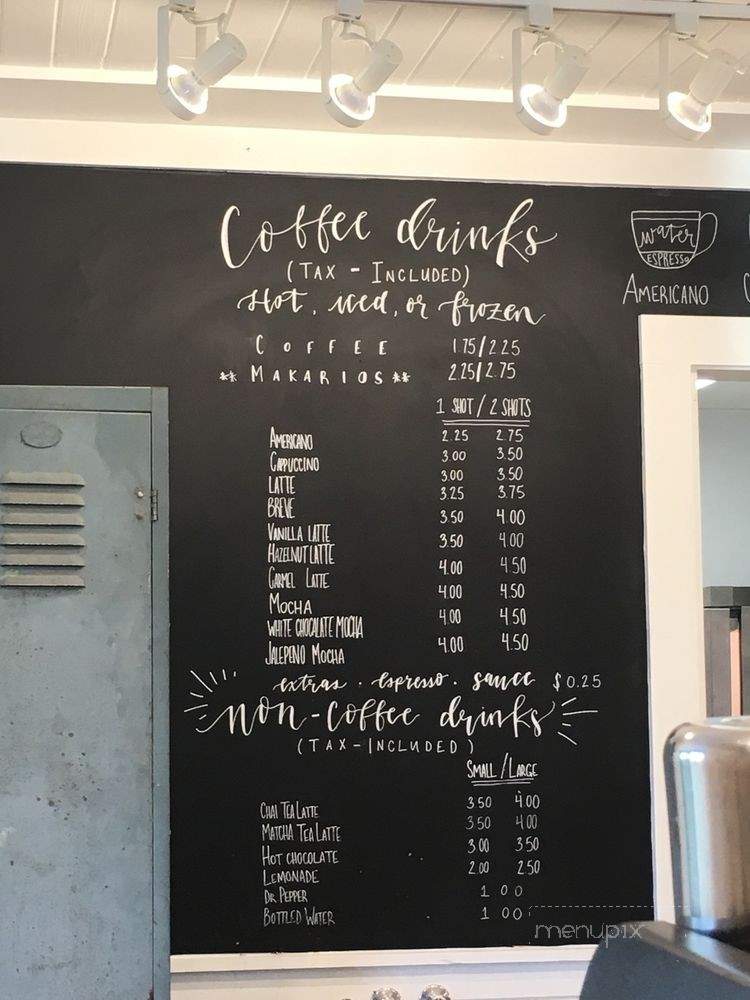 Coffee drinks
(TAX - INCLUDED)
Hot, iced, or frozen
COFFEE 1.75/2.25
** MAKARIOS ** 2.25/2.75
1 SHOT / 2 SHOTS
AMERICANO 2.25 2.75
CAPPUCCINO 3.00 3.50
LATTE 3.00 3.50
BREVE 3.25 3.75
VANILLA LATTE 3.50 4.00
HAZELNUT LATTE 3.50 4.00
CARMEL LATTE 4.00 4.50
MOCHA 4.00 4.50
WHITE CHOCALATE MOCHA 4.00 4.50
JALEPENO MOCHA 4.00 4.50
extras . espresso . sauce $0.25
non-coffee drinks
(TAX-INCLUDED)
SMALL / LARGE
CHAI TEA LATTE 3.50 4.00
MATCHA TEA LATTE 3.50 4.00
HOT CHOCOLATE 3.00 3.50
LEMONADE 2.00 2.50
DR PEPPER 1 00
BOTTLED WATER 1 00
water
ESPRESSO
AMERICANO
menupix